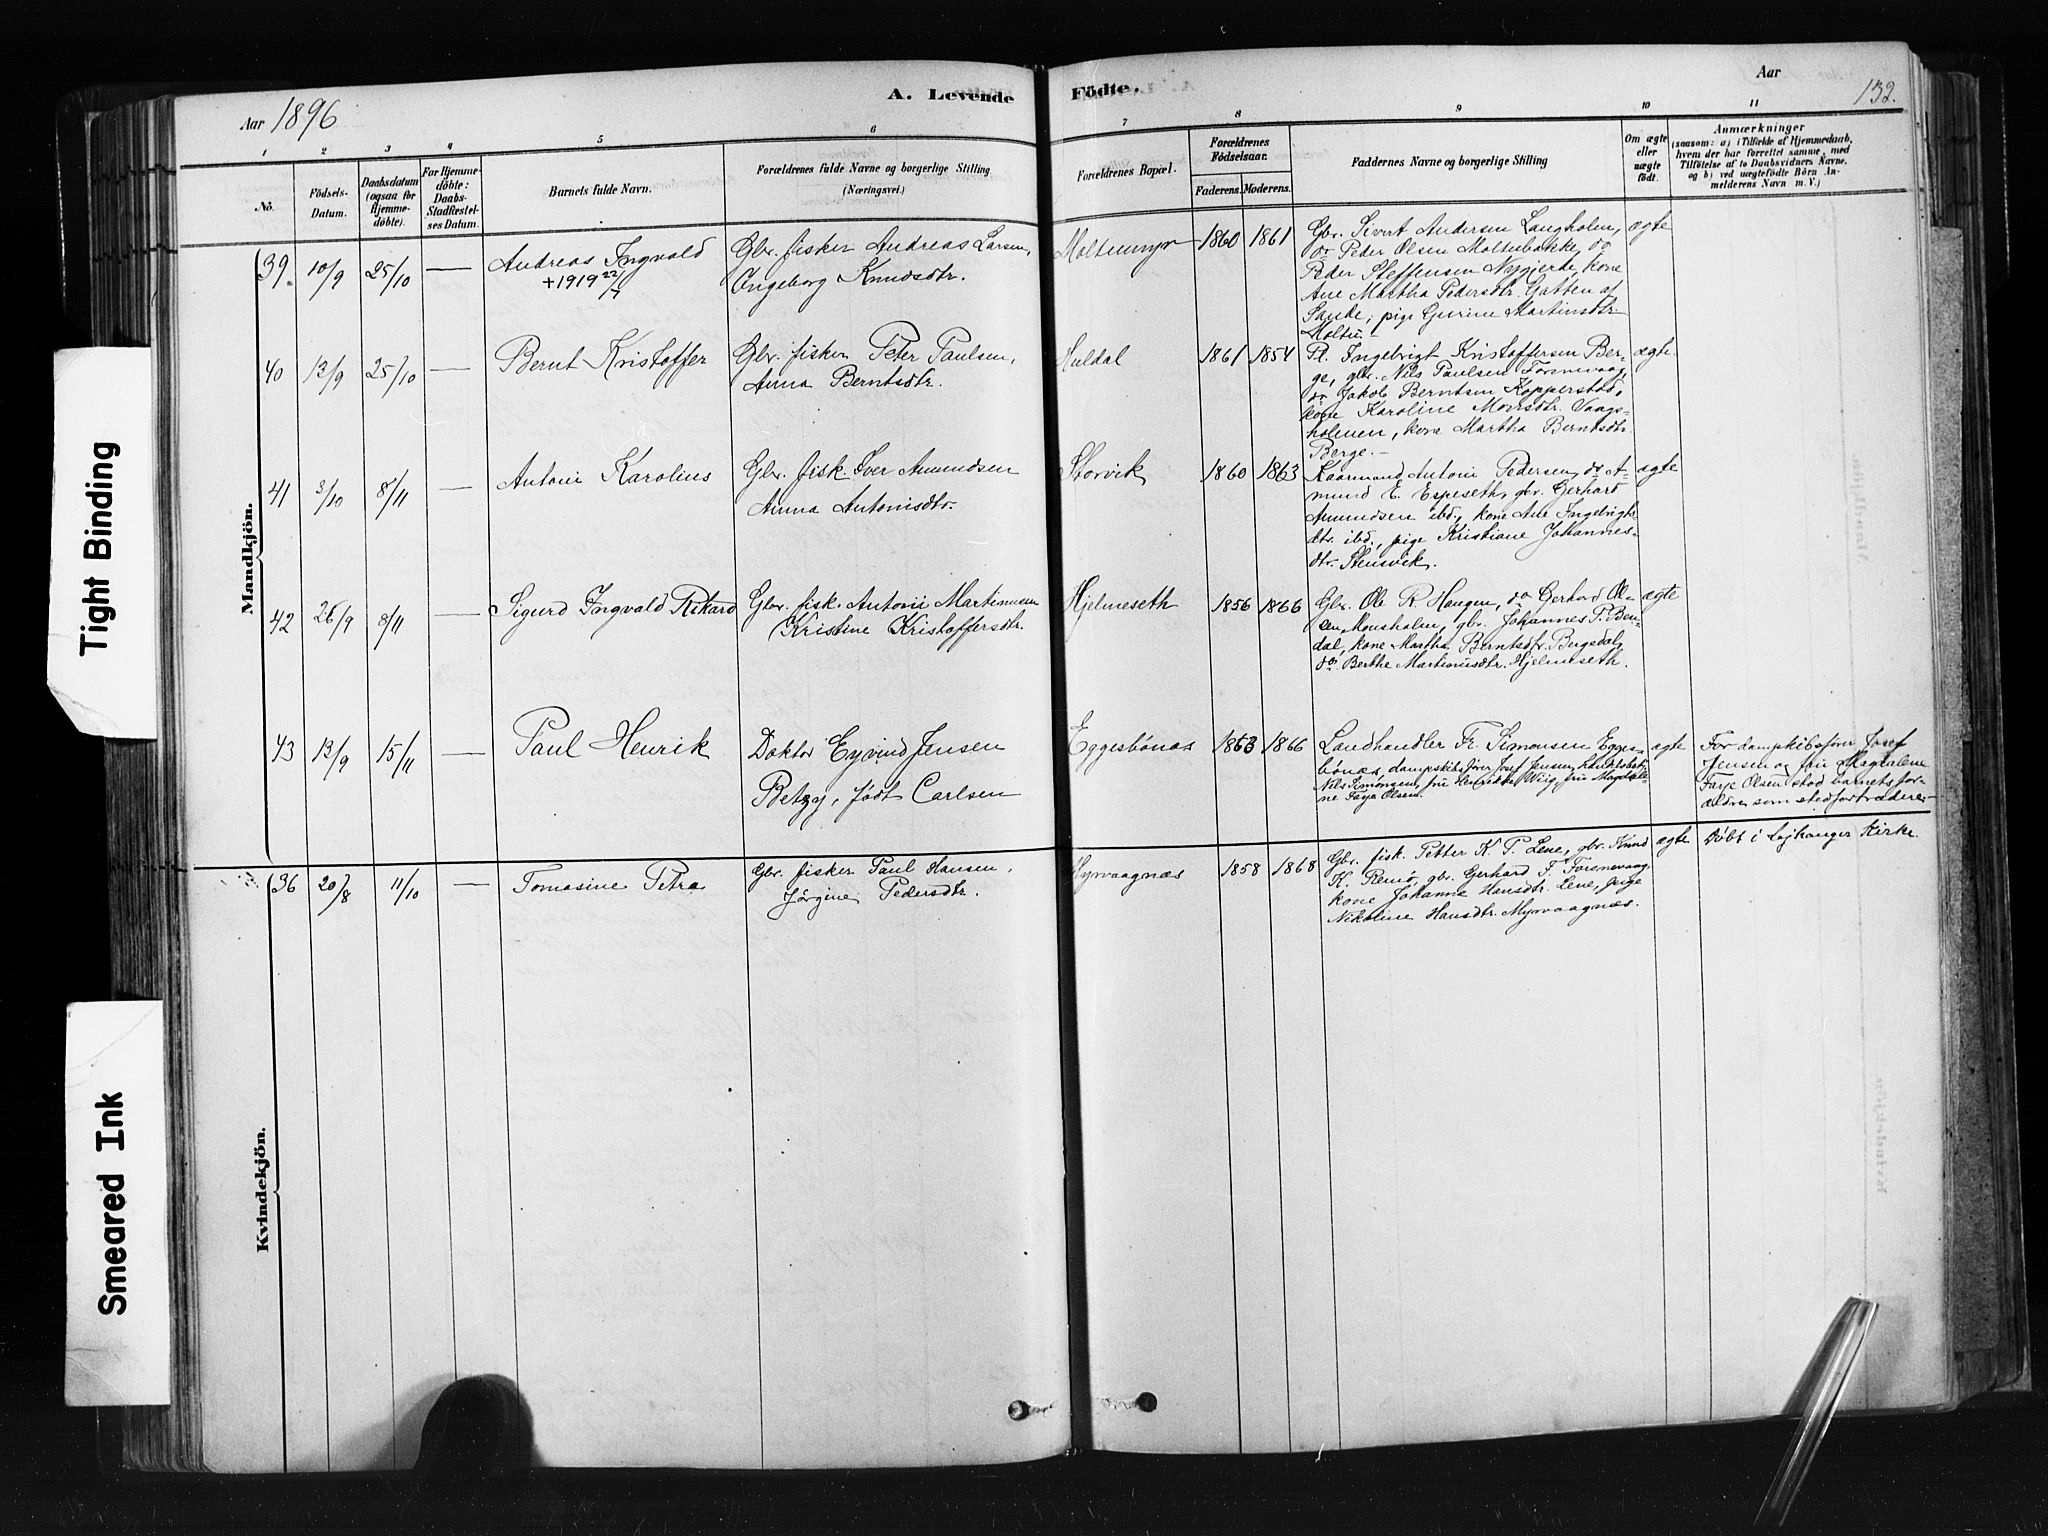 Aar 1896
A. Levende Födte.
Aar
132.
1 2 3 4 5 6 7 8 9 10 11
No.
Födsels-
Datum.
Daabsdatum
(ogsaa for
Hjemme-
döbte).
For Hjemme-
döbte:
Daabs-
Stadfæstel-
ses Datum.
Barnets fulde Navn.
Forældrenes fulde Navne og borgerlige Stilling
(Næringsvei.)
Forældrenes Bopæl.
Forældrenes
Födselsaar.
Faderens. Moderens.
Faddernes Navne og borgerlige Stilling
Om ægte
eller
uægte
födt.
Anmærkninger
(saasom: a) i Tilfælde af Hjemmedaab,
hvem der har forrettet samme, med
Tilföielse af to Daabsvidners Navne.
og b) ved uægtefödte Börn An-
melderens Navn m. V.)
Mandkjön.
39. 10/9 25/10 — Andreas Ingvald
+1919 22/7
Gbr. fisker Andreas Larsen,
Ongeborg Knudsdtr.
Moltumyr 1860 1861
Gbr. Sivert Andersen Langholen,
do Peder Olsen Moltubakke, do
Peder Steffensen Nygjerde, kone
Ane Martha Pedersdtr. Gotten af
Sande, pige Gurine Martinsdtr.
Moltu.—
ægte
40 13/9 25/10 — Bernt Kristoffer
Gbr. fisker Peter Paulsen,
Anna Berntsdtr.
Huldal 1861 1854
Pl. Ingebrigt Kristoffersen Ber-
ge, gbr. Nils Paulsen Forsnevaag,
do Jakob Berntsen Kopperstad,
kone Karoline Monsdtr. Vaags-
holmen, kone Martha Berntsdtr.
Berge.—
ægte
41 3/10 8/11 — Antoni Karolius
Gbr. fisk. Iver Amundsen
Anna Antonisdtr.
Storvik 1860 1863
Kaarmand Antoni Pedersen, do A-
mund E. Espeseth, gbr. Gerhard
Amundsen ibd., kone Ane Ingebrigts-
dtr. ibd., pige Kristiane Johannes-
dtr. Stensvik.
ægte
42 26/9 8/11 — Sigurd Ingvald Rikard
Gbr. fisk. Antoni Martinusen
Kristine Kristoffersdtr.
Hjelmeseth 1856 1866
Gbr. Ole R. Haugen, do Gerhard Ol-
sen Mousholm, gbr. Johannes P. Ben-
dal, kone Martha Berntsdtr. Bergsdal,
do Berthe Martinusdtr. Hjelmeseth.
ægte
43 13/9 15/11 — Paul Henrik
Doktor Eyvind Jensen
Betzy, født Carlsen
Eggesbönæs 1853 1866
Landhandler Fr. Simonsen Egges-
bönæs, dampskibsfører Josef Jensen, handelsbest.
Nils Simonsen, fru Henrikke Wiig, fru Magdale-
ne Faye Olsen.
ægte
For dampskibsfører Josef
Jensen og fru Magdalene
Faye Olsen stod barnets for-
ældre som stedfortrædere.—
Kvindekjön.
36 20/8 11/10 — Tomasine Petra
Gbr. fisker Paul Hansen,
Jørgine Pedersdtr.
Myrvaagnæs 1858 1868
Gbr. fisk. Petter K. P. Lene, gbr. Knud
K. Remö, gbr. Gerhard F. Forsnevaag,
kone Johanne Hansdtr. Lene, pige
Nikoline Hansdtr. Myrvaagnæs.
ægte
Döbt i Lejkanger Kirke.
Tight Binding
Smeared Ink